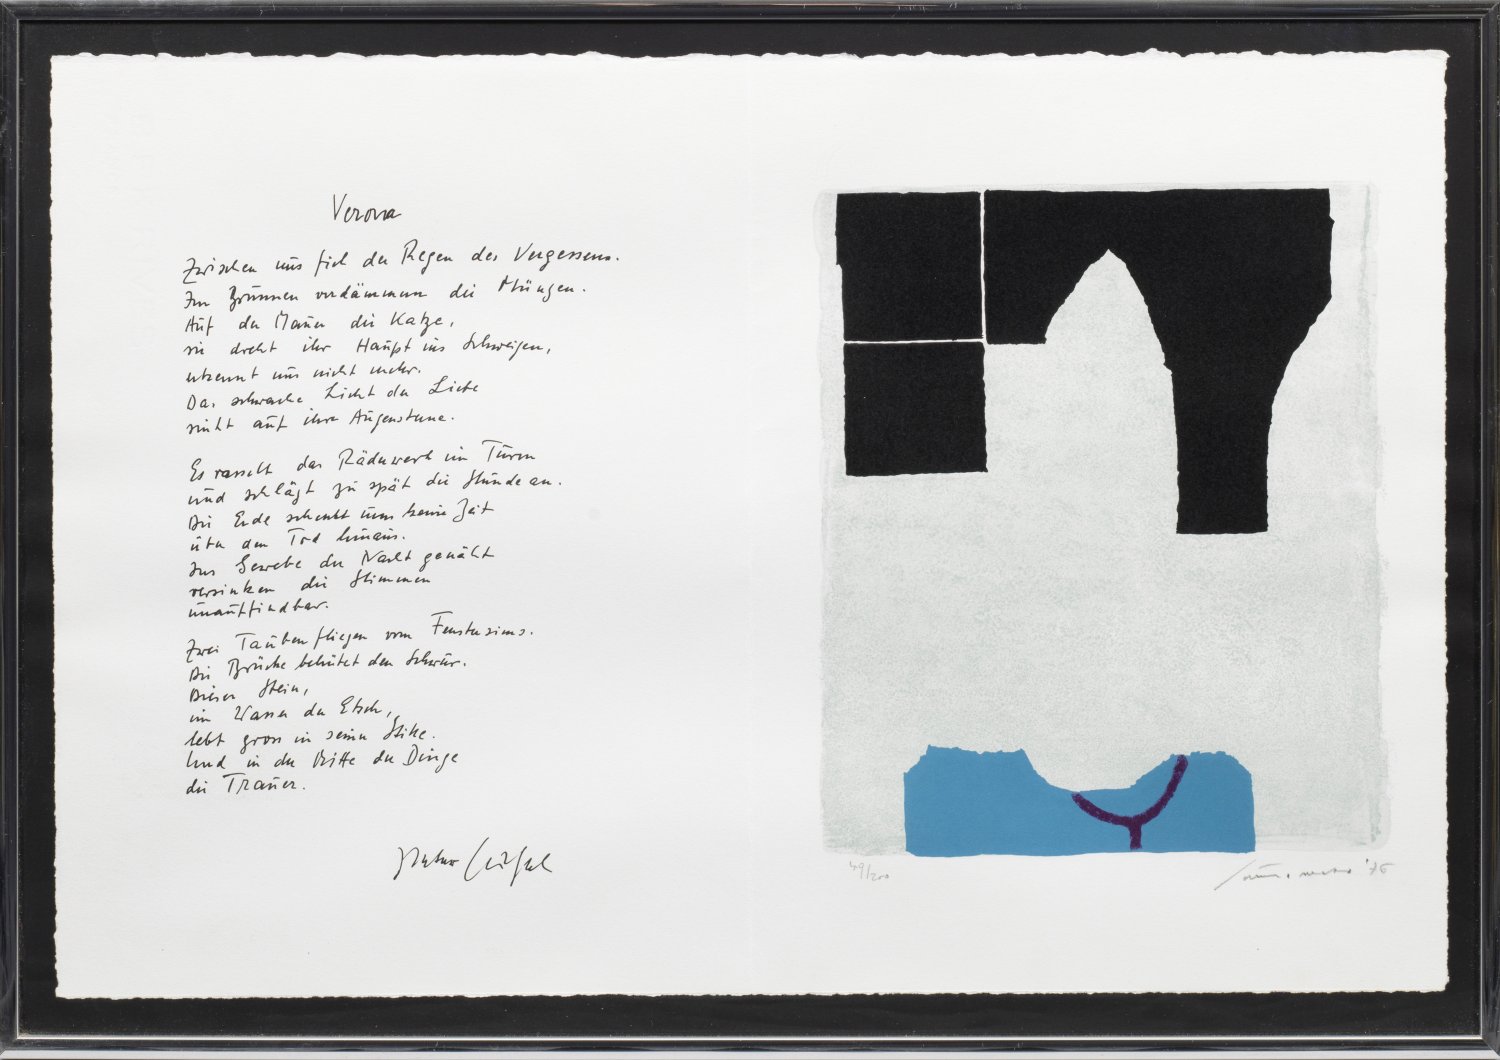 Verona
Zwischen uns fiel der Regen des Vergessens.
Im Brunnen verdämmern die Münzen.
Auf der Mauer die Katze,
sie dreht ihr Haupt ins Schweigen,
erkennt uns nicht mehr.
Das schwache Licht der Liebe
sinkt auf ihre Augensterne.
Es rasselt das Räderwerk im Turm
und schlägt zu spät die Stunde an.
Die Erde schenkt uns keine Zeit
über den Tod hinaus.
Ins Gewebe der Nacht genäht
versinken die Stimmen
unauffindbar.
Zwei Tauben fliegen vom Fenstersims.
Die Brücke behütet den Schwur.
Dieser Stein,
im Wasser der Etsch,
lebt gross in seiner Stille.
Und in der Mitte der Dinge
die Trauer.
49/200
'76